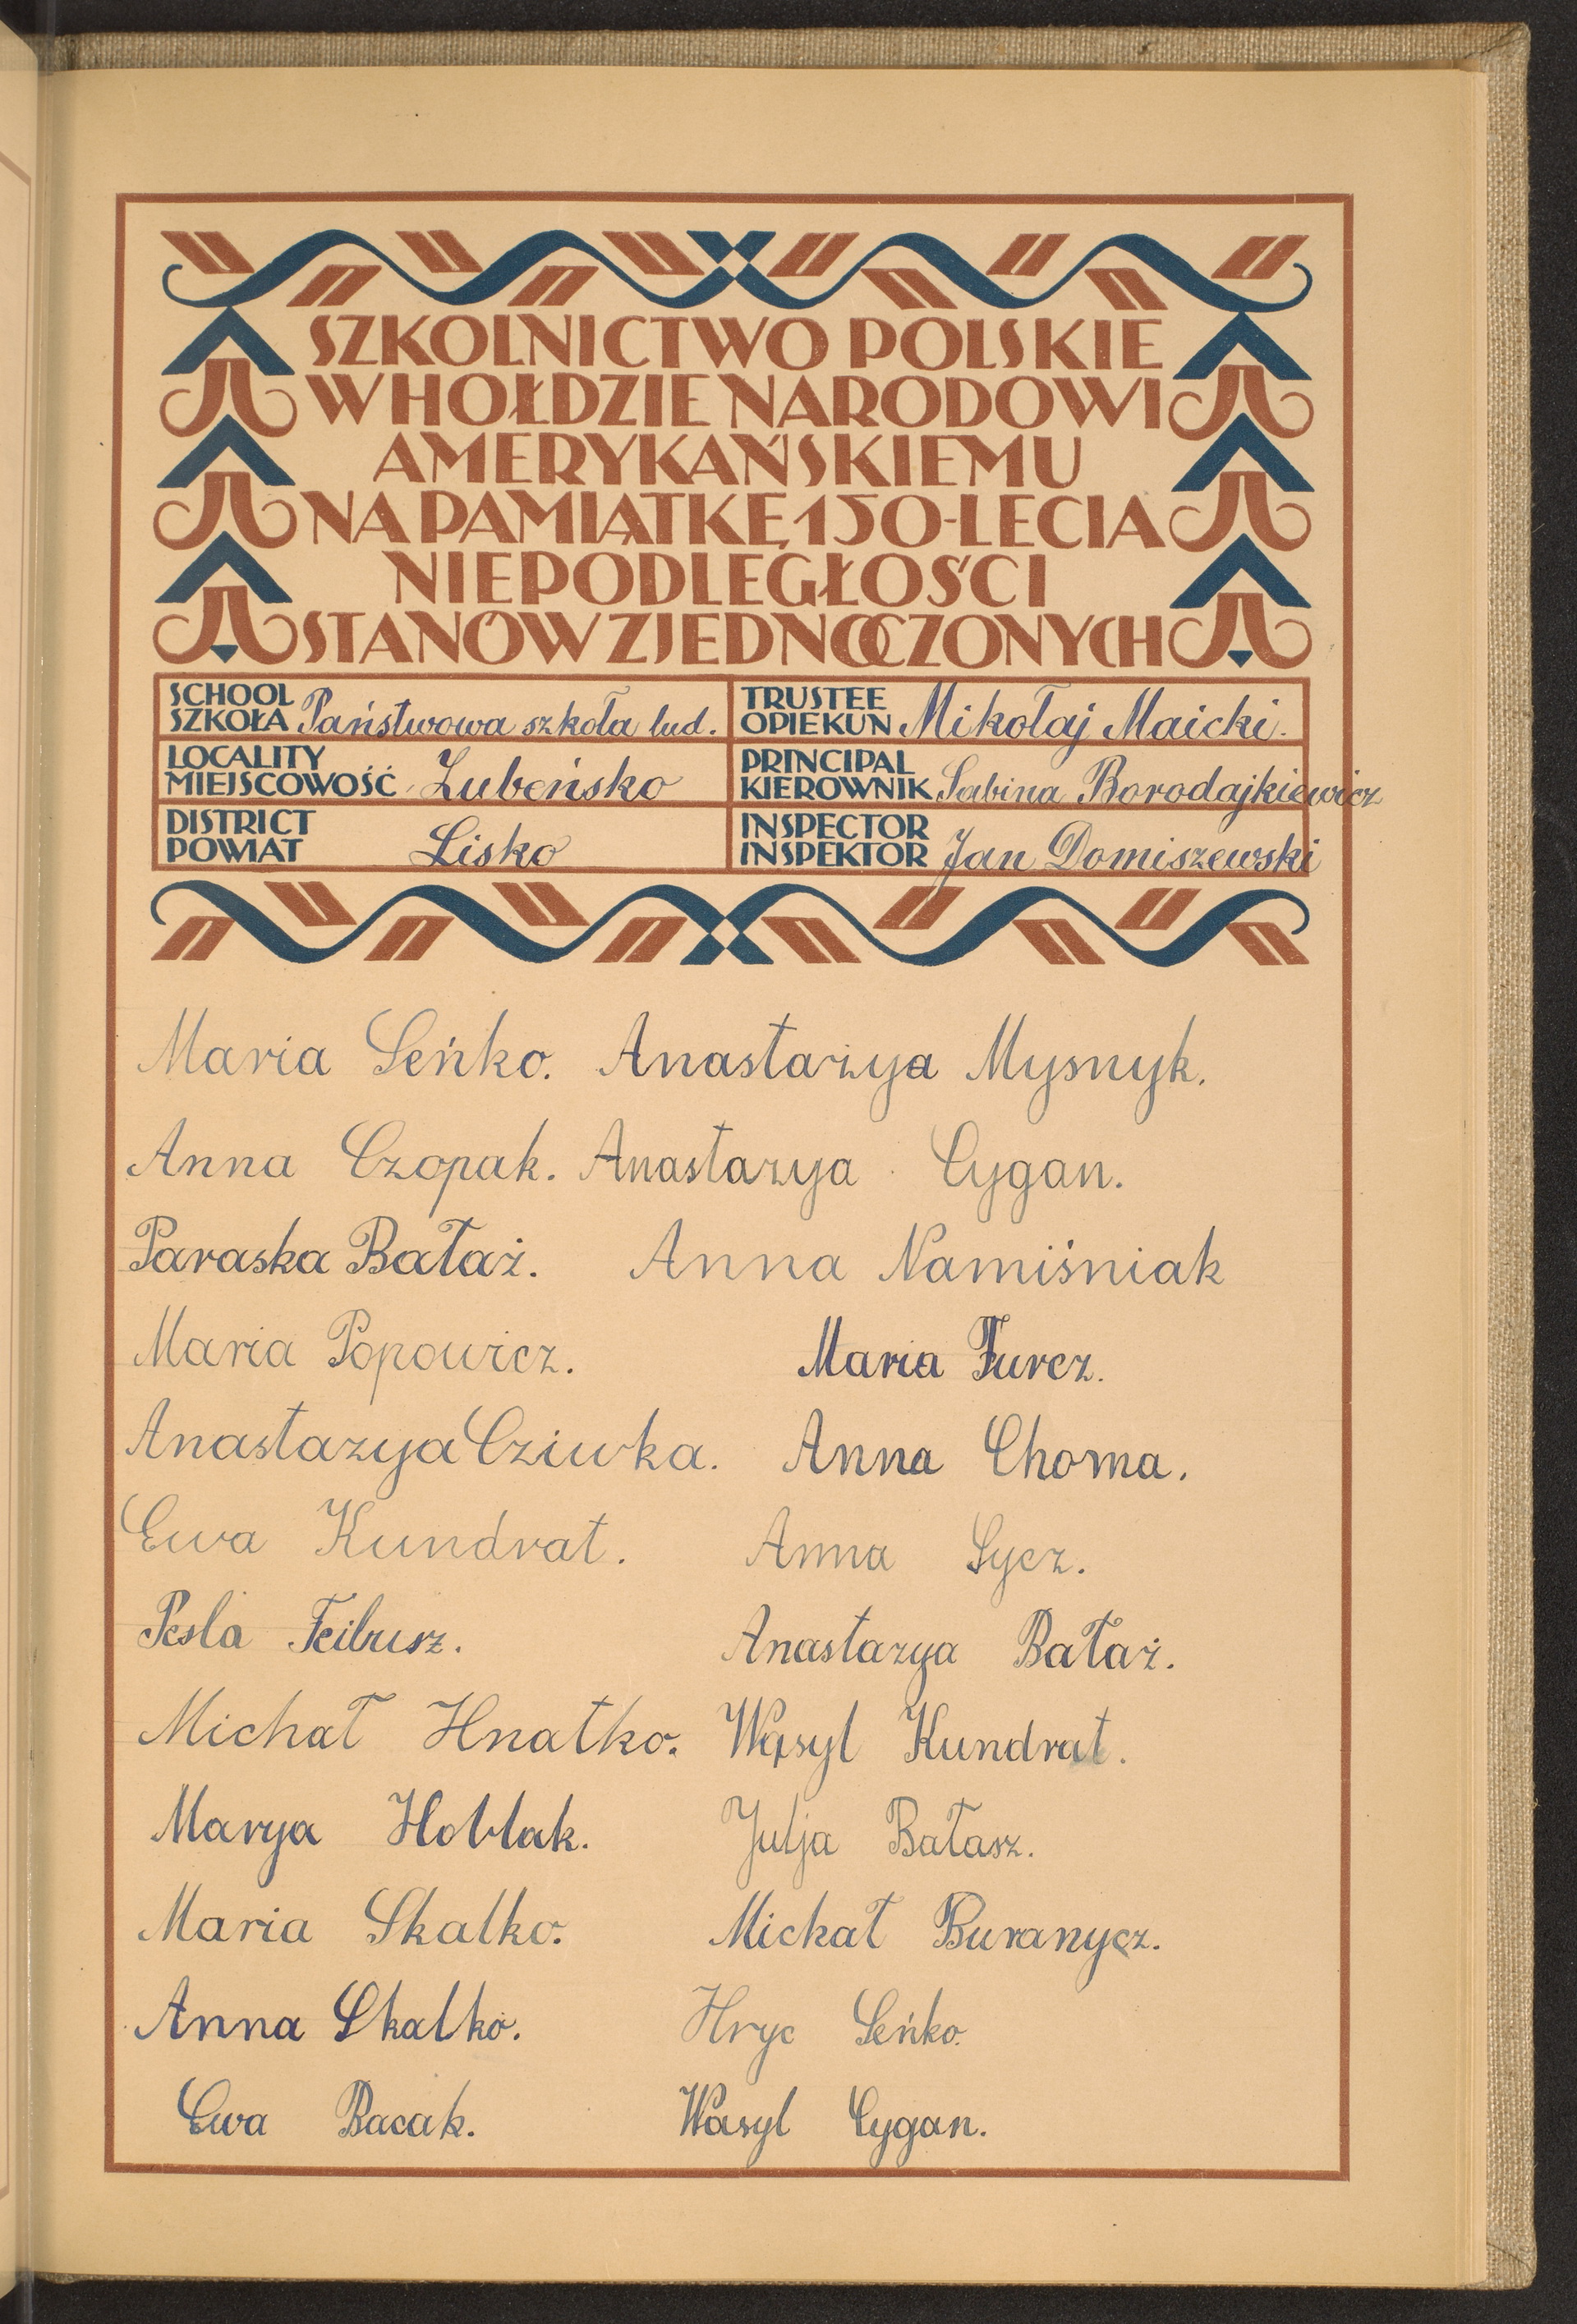 SZKOLNICTWO POLSKIE
W HOŁDZIE NARODOWI
AMERYKAŃSKIEMU
NA PAMIĄTKĘ 150-LECIA
NIEPODLEGŁOŚCI
STANÓW ZJEDNOCZONYCH
SCHOOL
SZKOŁA Państwowa szkoła lud.
TRUSTEE
OPIEKUN Mikołaj Maicki.
LOCALITY
MIEJSCOWOŚĆ Łubeńsko
PRINCIPAL
KIEROWNIK Sabina Borodajkiewicz
DISTRICT
POWIAT Lisko
INSPECTOR
INSPEKTOR Jan Domiszewski
Maria Seńko. Anastazya Mysnyk.
Anna Czopak. Anastazya Cygan.
Paraska Bałaż. Anna Namiśniak
Maria Popowicz. Maria Furcz.
Anastazya Cziwka. Anna Choma.
Ewa Kundrat. Anna Sycz.
Pesla Feibusz. Anastazya Bałaż.
Michał Hnatko. Wasyl Kundrat.
Marya Hoblak. Julja Bałasz.
Maria Skalko. Michał Buranycz.
Anna Skalko. Hryc Seńko.
Ewa Bacak. Wasyl Cygan.